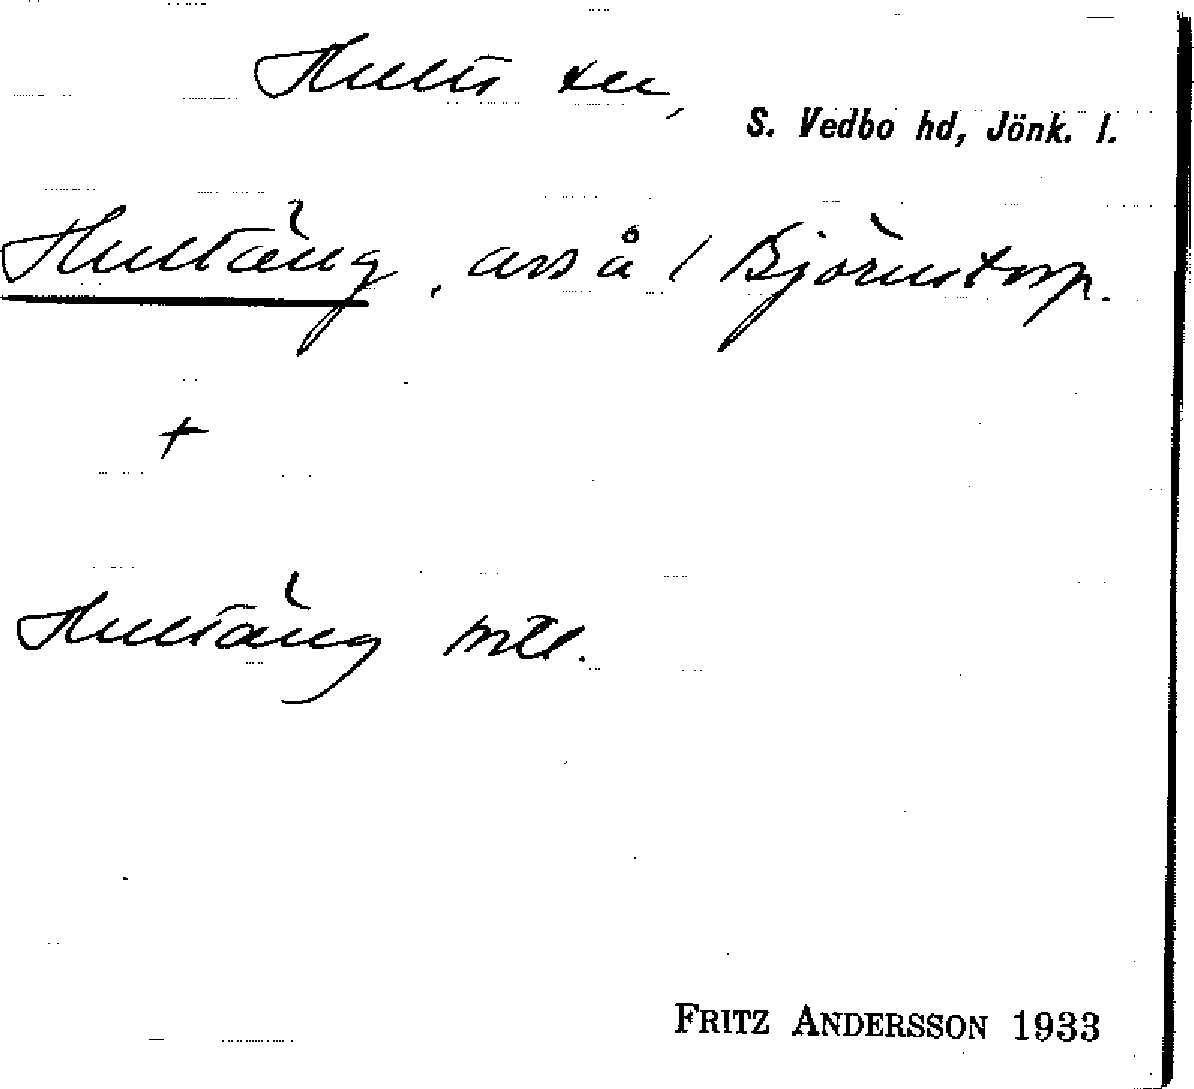 Hults sn,
S. Vedbo hd, Jönk. l.
Hultäng, avs å / Björnstorp.
+
Hultäng
FRITZ ANDERSSON 1933